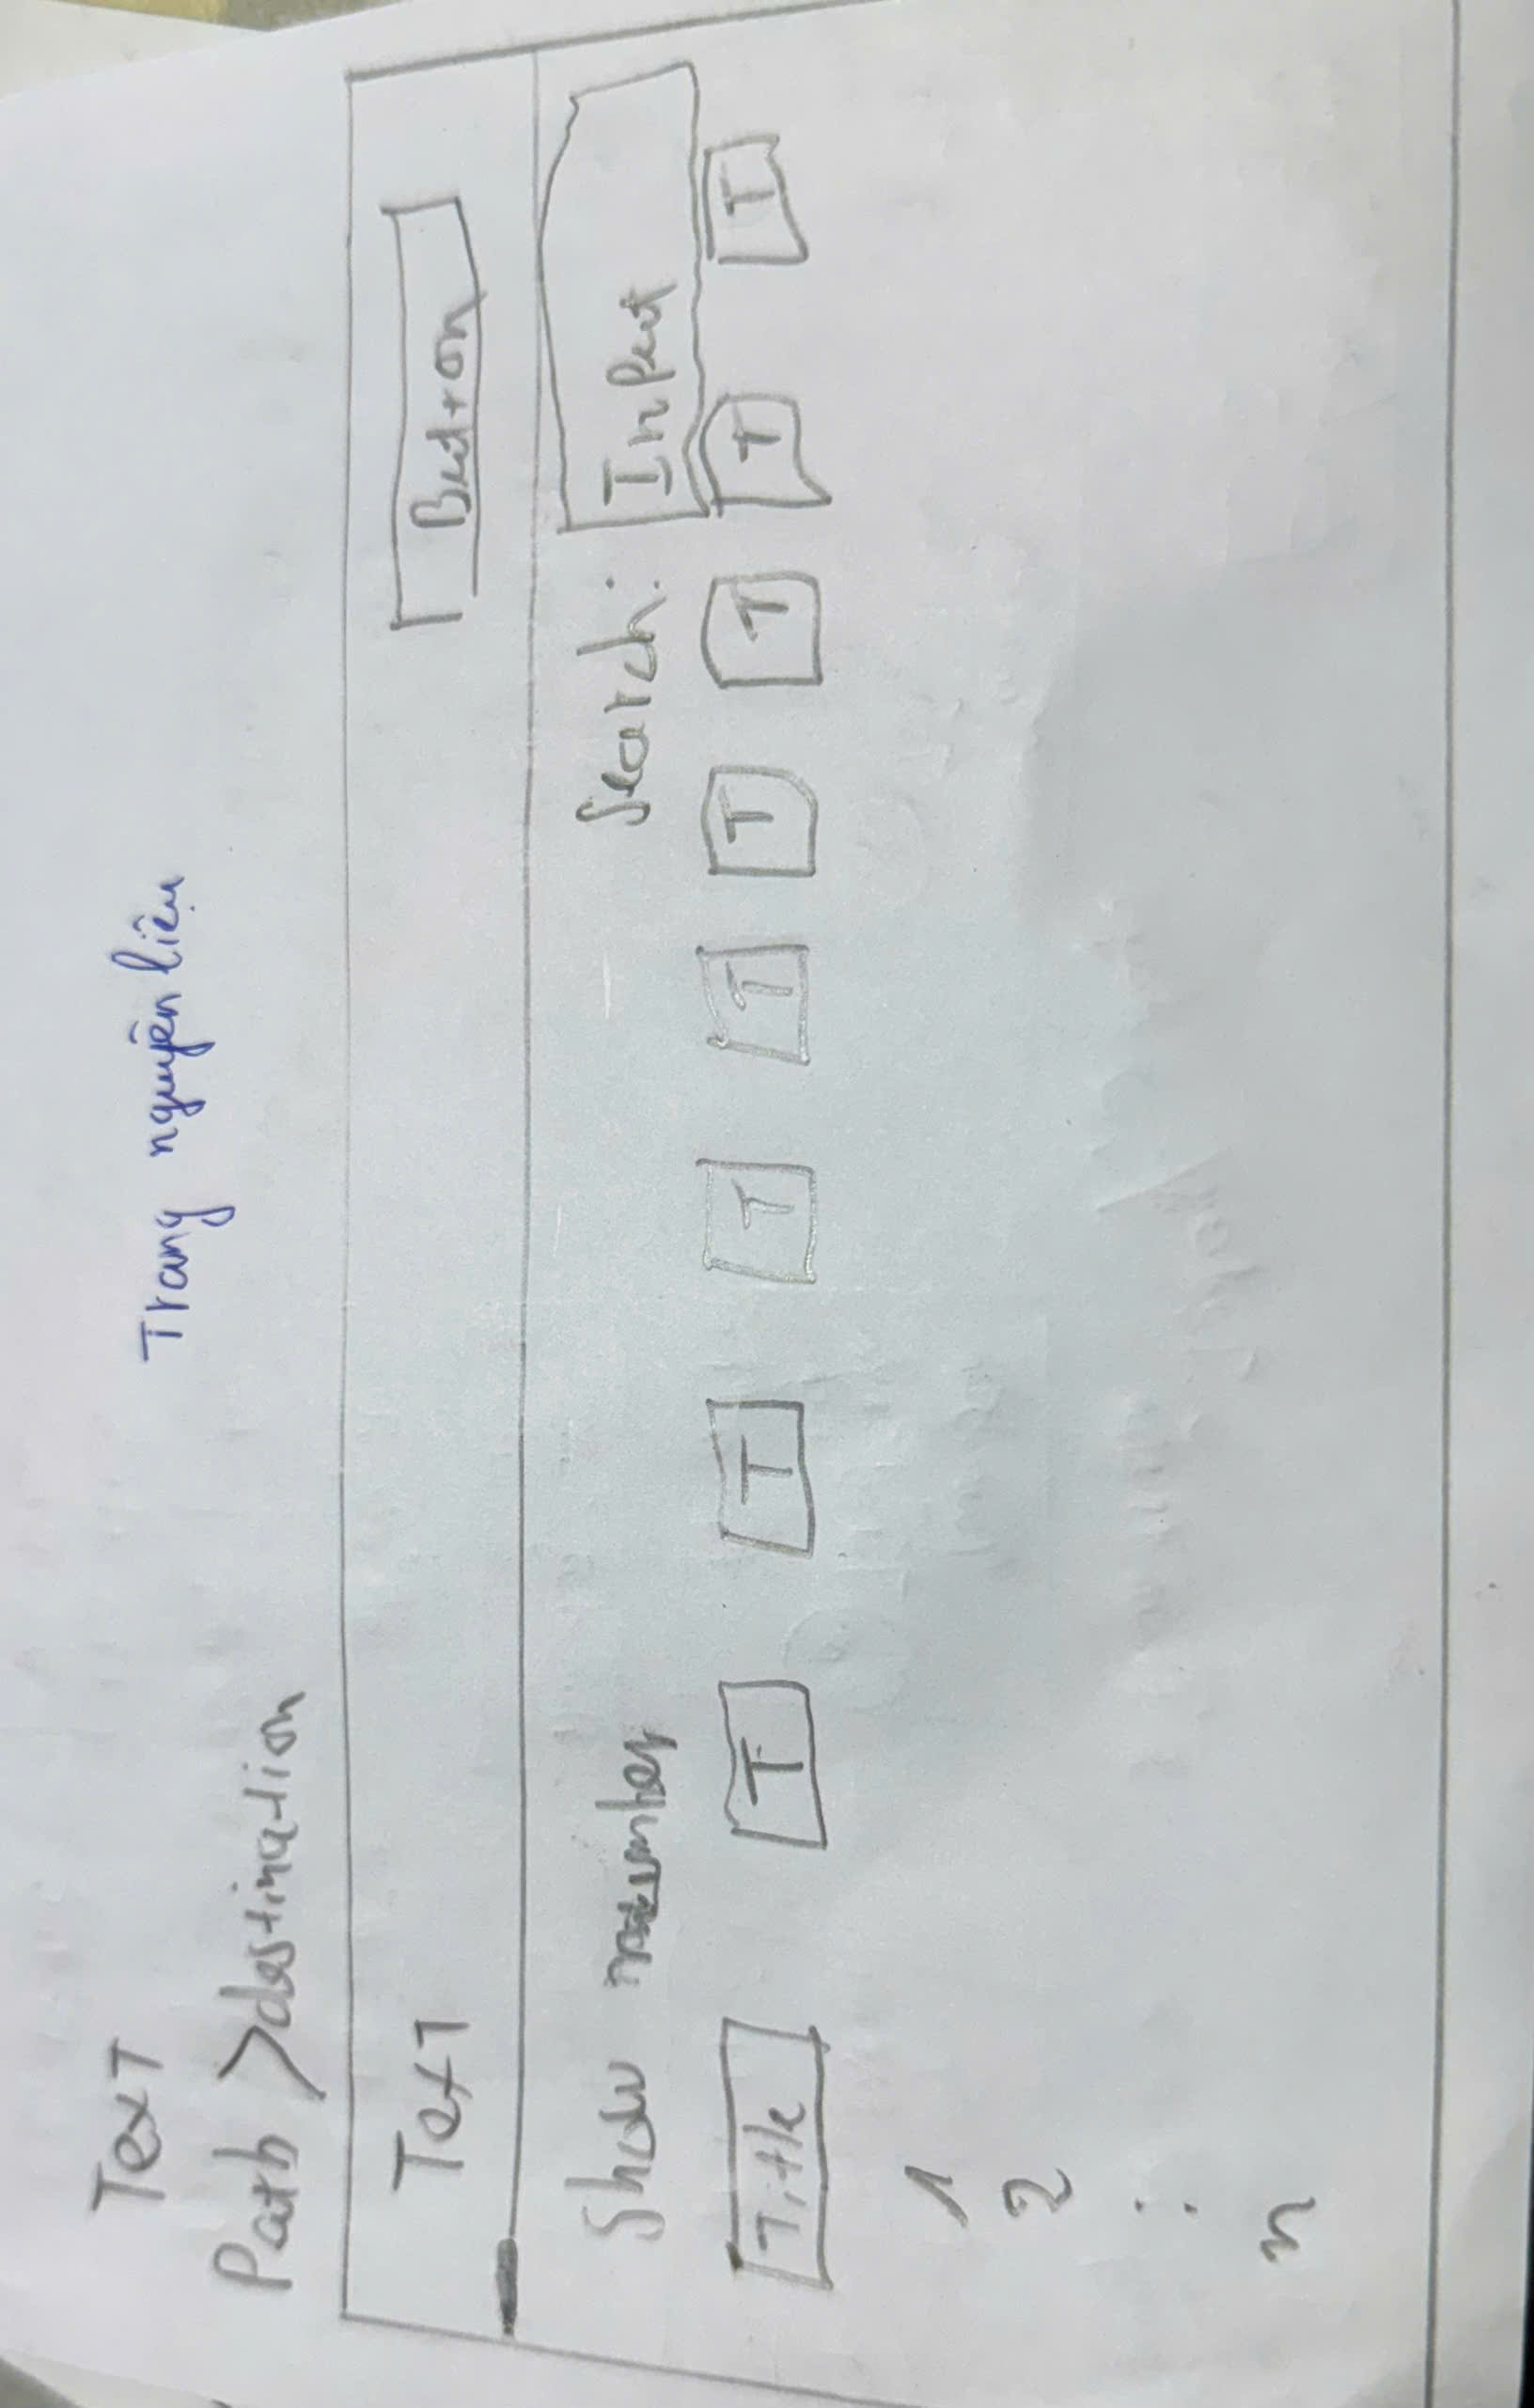 Trang nguyên liệu
Text
Path > destination
Text Button
Show number Search: Input
Title T T T T T T T T
1
2
:
n